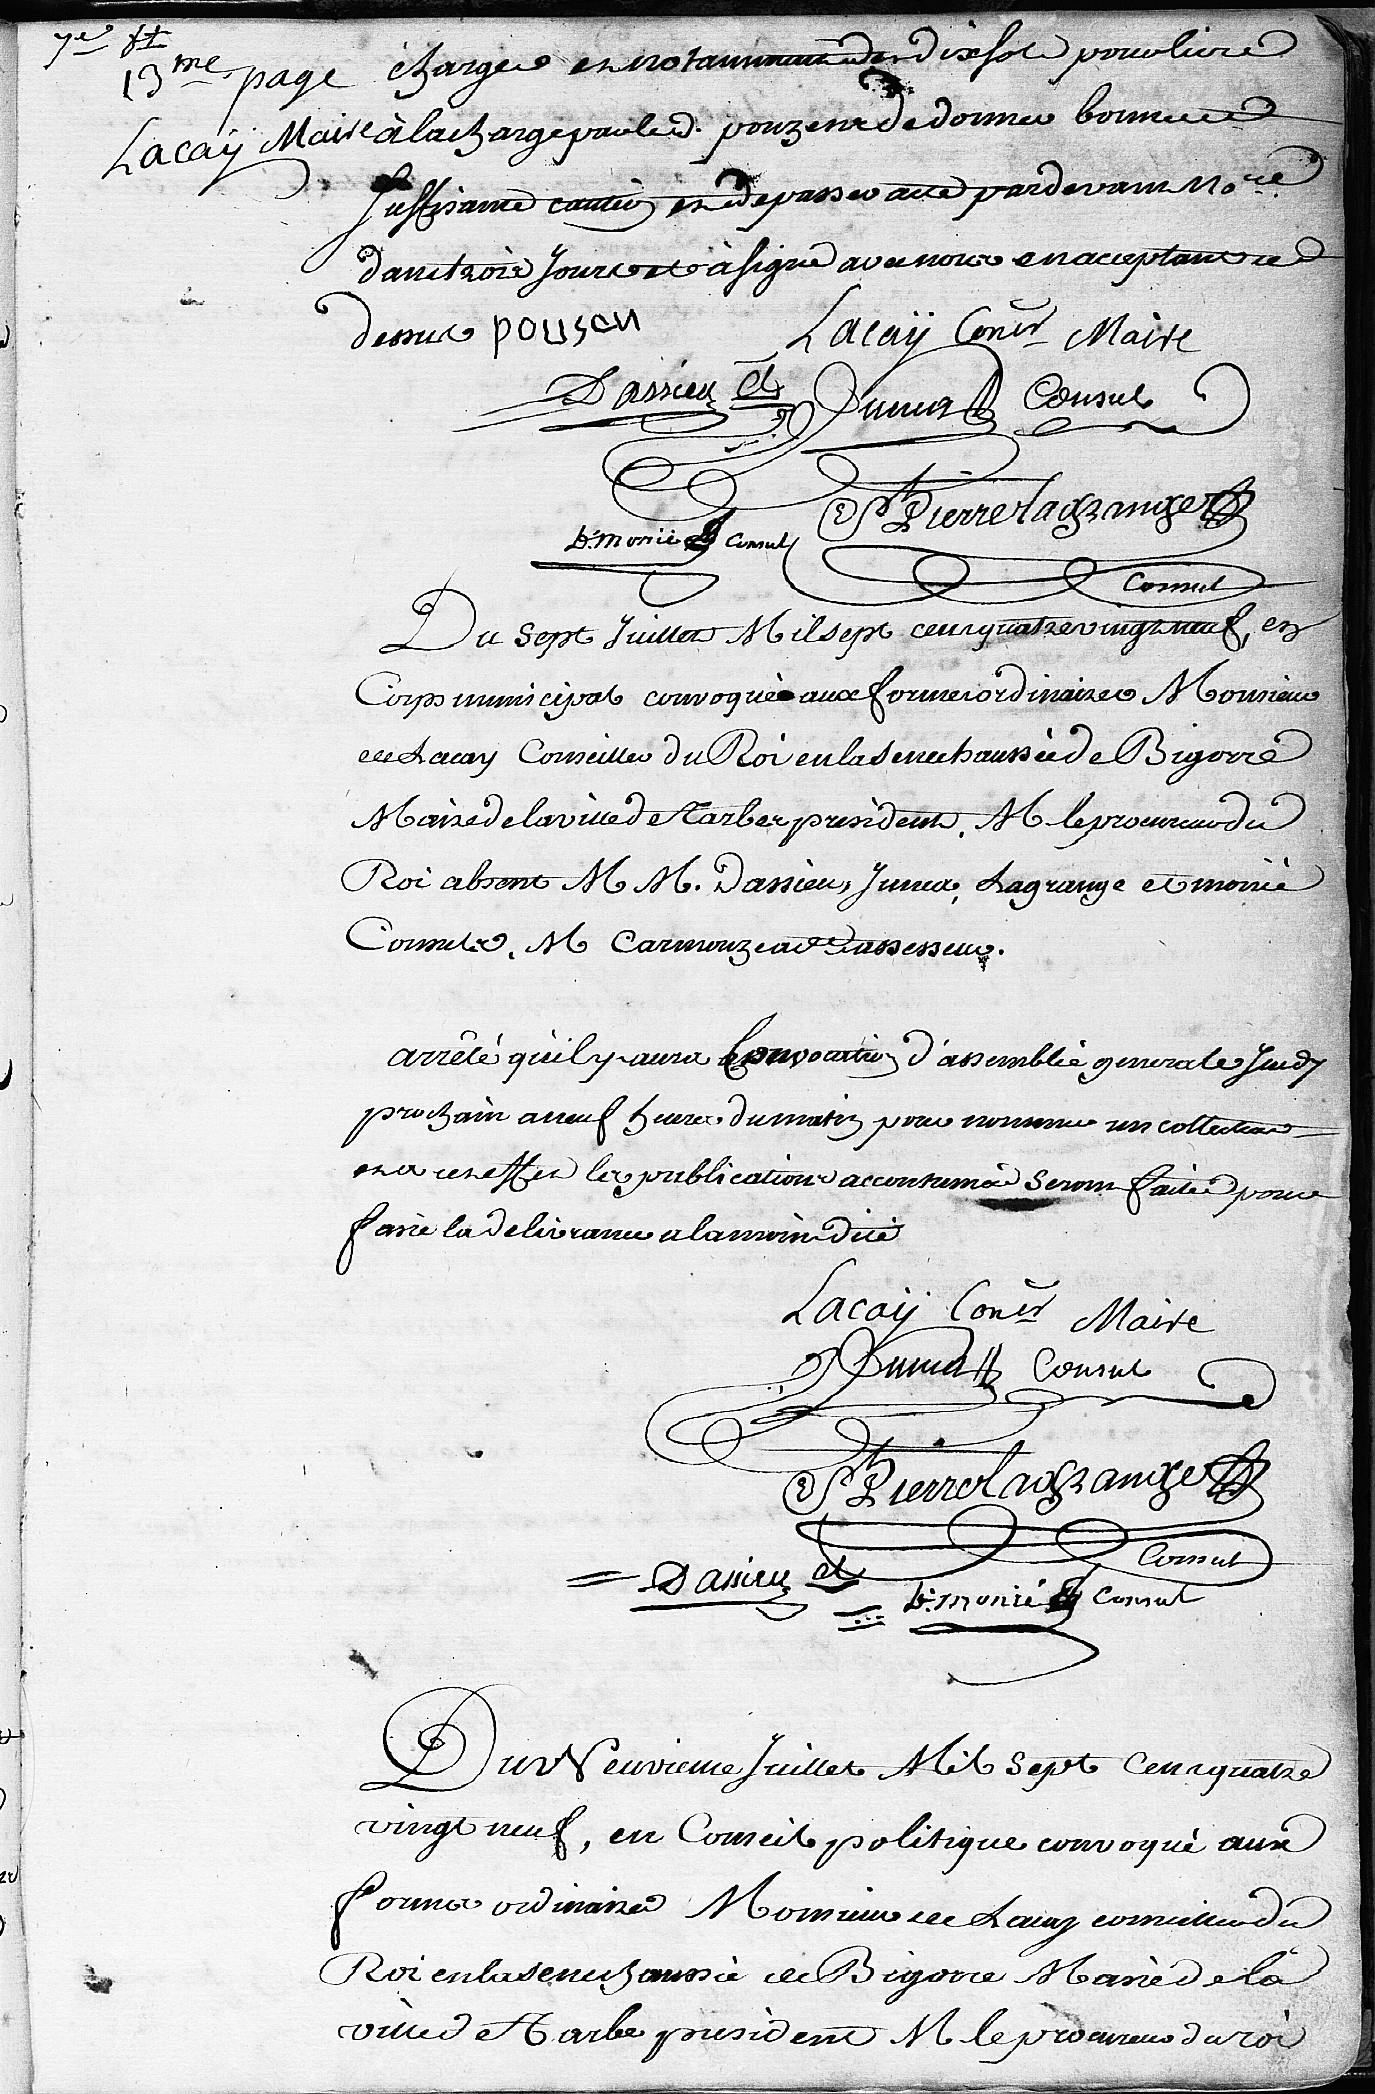 7e ft
13me page
Lacaÿ Maire
charges et notamment des dix sols pour livre
à la charge par led. pouzene de donner bonne et
suffisante caution et de passer acte pardevant Nore
dans trois jours et a signé avec nous en acceptant ce
dessus pousen
Lacaÿ Coner Maire
Dassieu cl
Junca Consul
St Pierre lagrange
Consul
b. monié Consul
Du sept Juillet Mil sept cens quatre vingt neuf, en
Corps municipal convoqué aux formes ordinaires Monsieur
de Lacay Conseiller du Roi en la senechaussée de Bigorre
Maire de la ville de Tarbes president, M le procureur du
Roi absent M M. Dassieu, Junca, Lagrange et monié
Consuls, M Carmouze assesseur.
arrêté qu'il y aura Convocation d'assemblée generale Jeudy
prochain a neuf heures du matin pour nommer un collecteur
et a cet effet les publications accoutumées seront faites pour
faire la delivrance a la moins dite
Lacaÿ Coner Maire
Junca Consul
St Pierre lagrange
Consul
Dassieu cl
b. monié Consul
Du Neuvieme Juillet Mil Sept Cens quatre
vingt neuf, en Conseil politique convoqué aux
formes ordinaires Monsieur de Lacay conseiller du
Roi en la senechaussée de Bigorre Maire de la
ville de Tarbes president M le procureur du roi